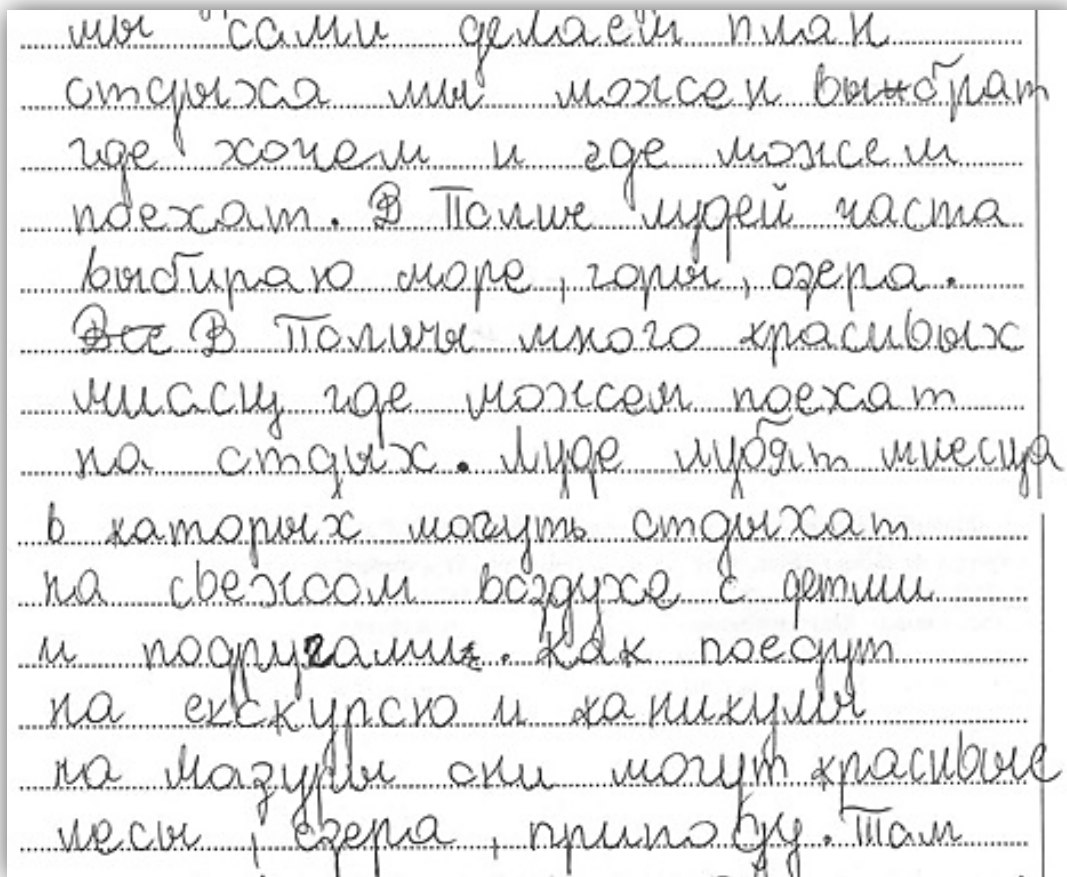 мы сами делаем план
отдыха мы можен выбрат
где хочем и где можем
поехат. В Полше людей часта
выбираю море, горы, озера.
Все В Полшы много красивых
миасц где можем поехат
на отдых. Луде лубят миесца
в каторых могуть отдыхат
на свежом воздухе с детми
и подругами. Как поедут
на екскурсю и каникулы
на Мазуры они могут красивые
лесы, езера, природу. Там